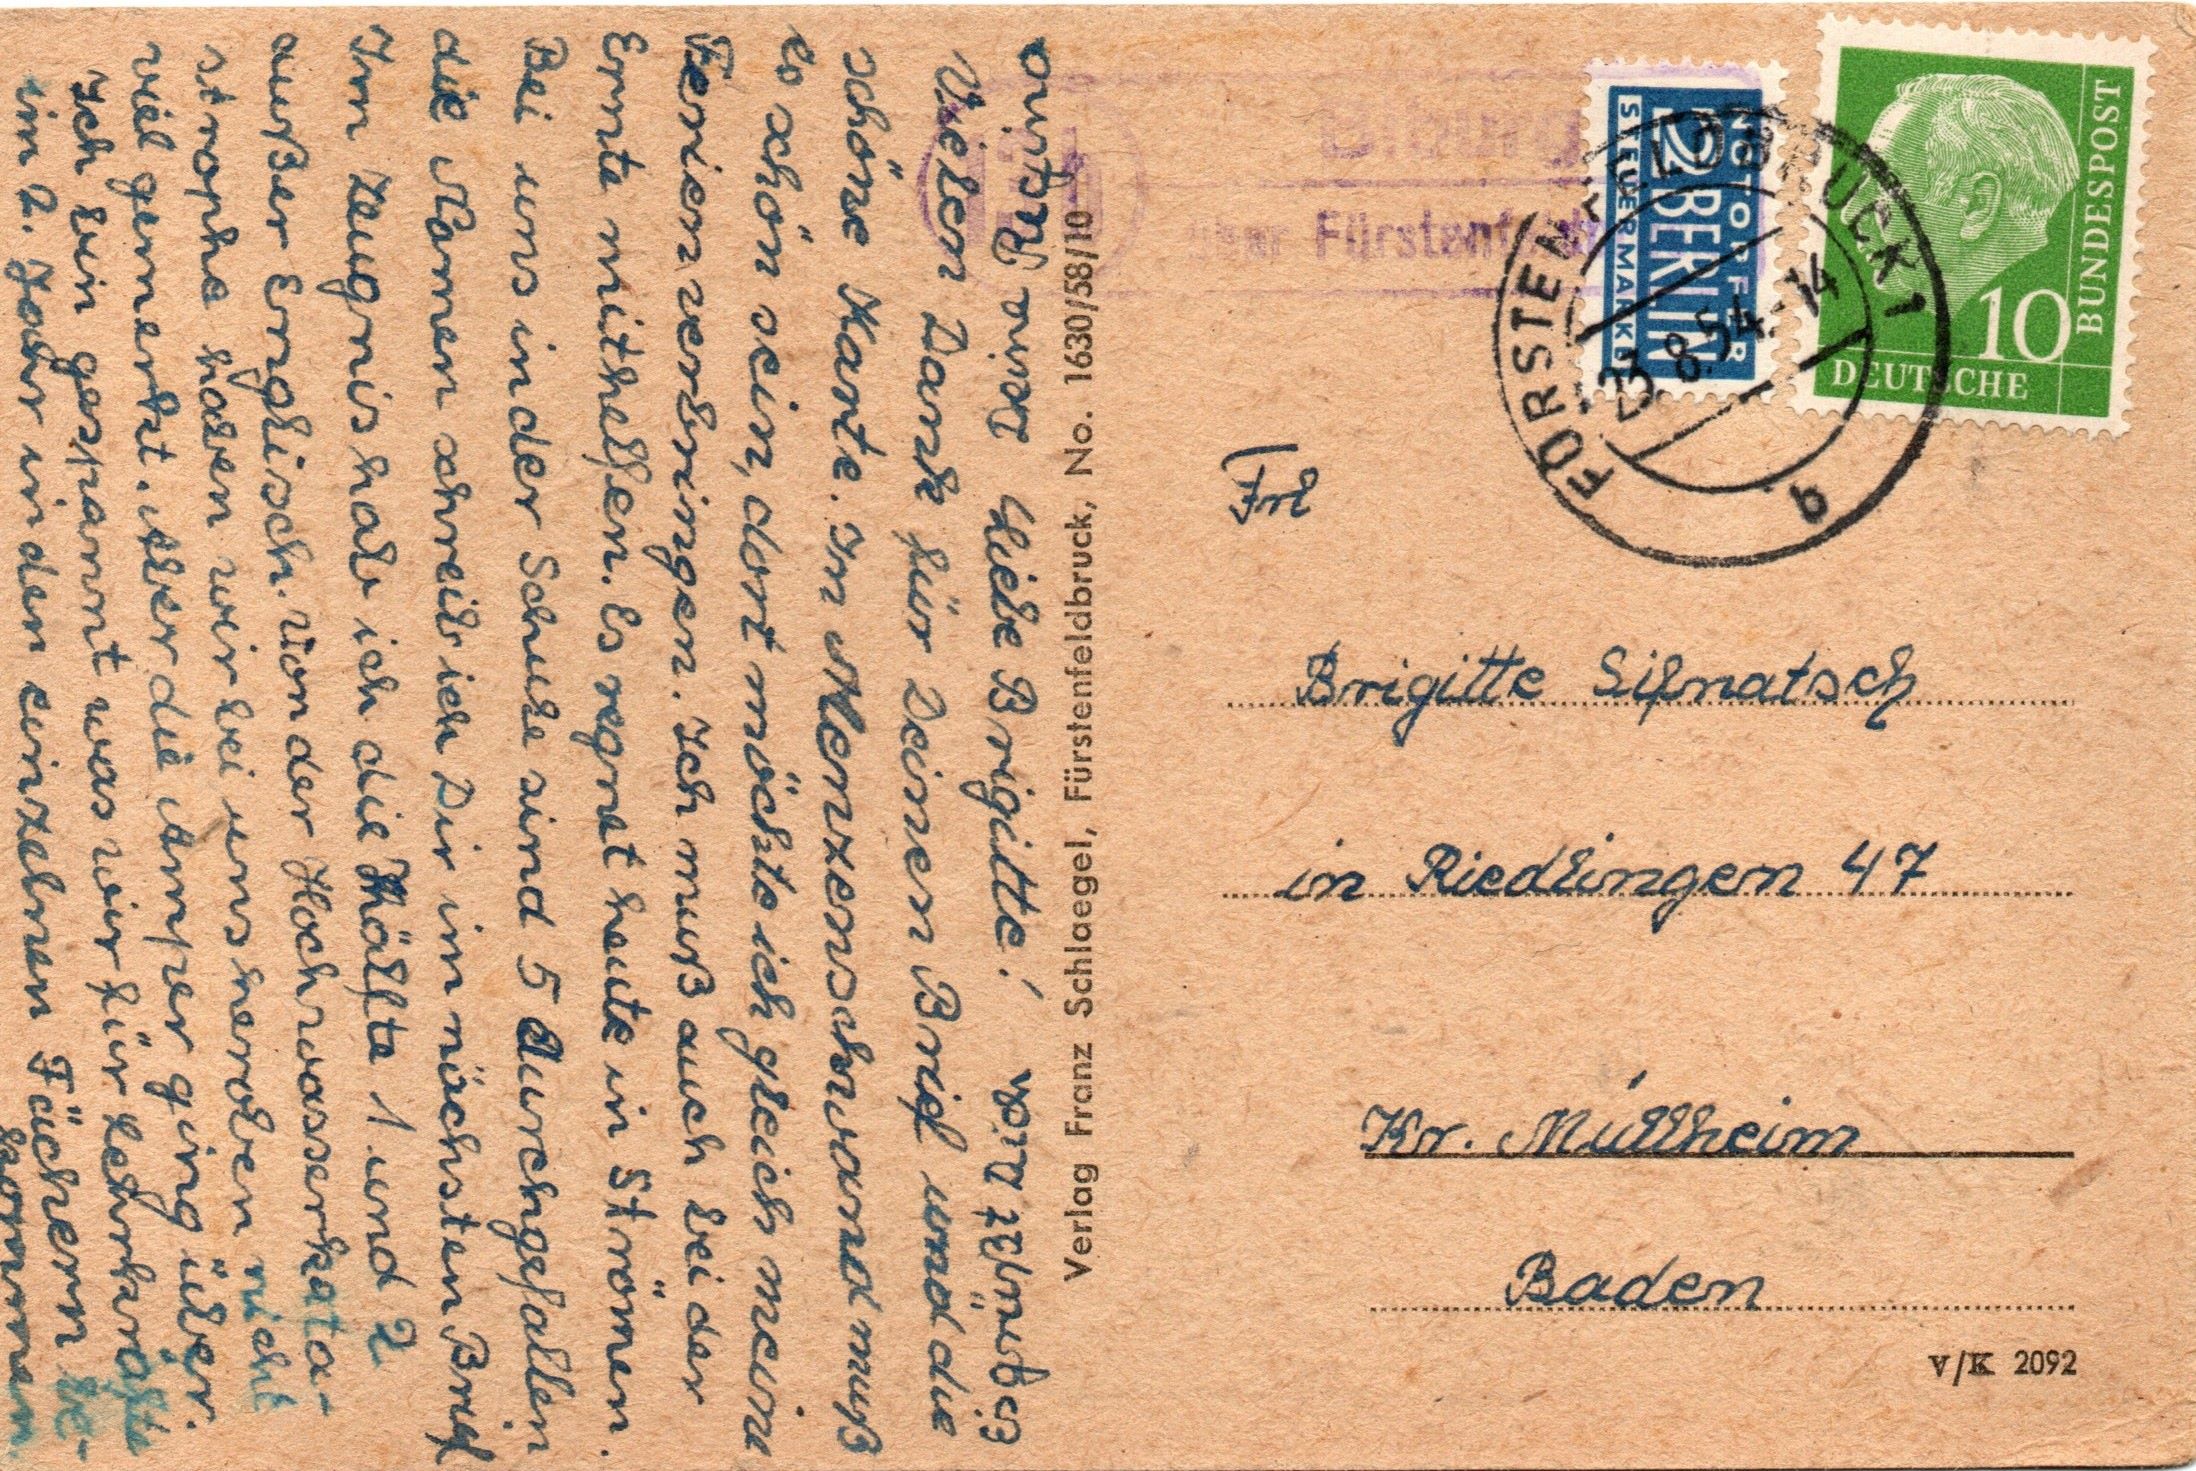 Liebe Brigitte!
Vielen Dank für Deinen Brief und die
schöne Karte. In Menzenschwand muß
es schön sein, dort möchte ich gleich meine
Ferien verbringen. Ich muß auch bei der
Ernte mithelfen. Es regnet heute in Strömen.
Bei uns in der Schule sind 5 durchgefallen
die Namen schreib ich Dir im nächsten Brief
Im Zeugnis hab ich die Hälfte 1 und 2
außer Englisch. Von der Hochwasserkata-
strophe haben wir bei uns heroben nicht
viel gemerkt. Aber die Amper ging über.
Ich bin gespannt was wir für Lehrkräfte
im 2. Jahr in den einzelnen Fächern be-
kommen.
Es grüßt Dich
Deine
Verlag Franz Schlaegel, Fürstenfeldbruck, No. 1630/58/10
13b
Biburg
über Fürstenfeldbr
NOTOPFER
2 BERLIN
STEUERMARKE
FÜRSTENFELDBRUCK 1
23.8.54.-14
b
10
DEUTSCHE
BUNDESPOST
Frl
Brigitte
in Riedlingen 47
Kr. Müllheim
Baden
V/K 2092